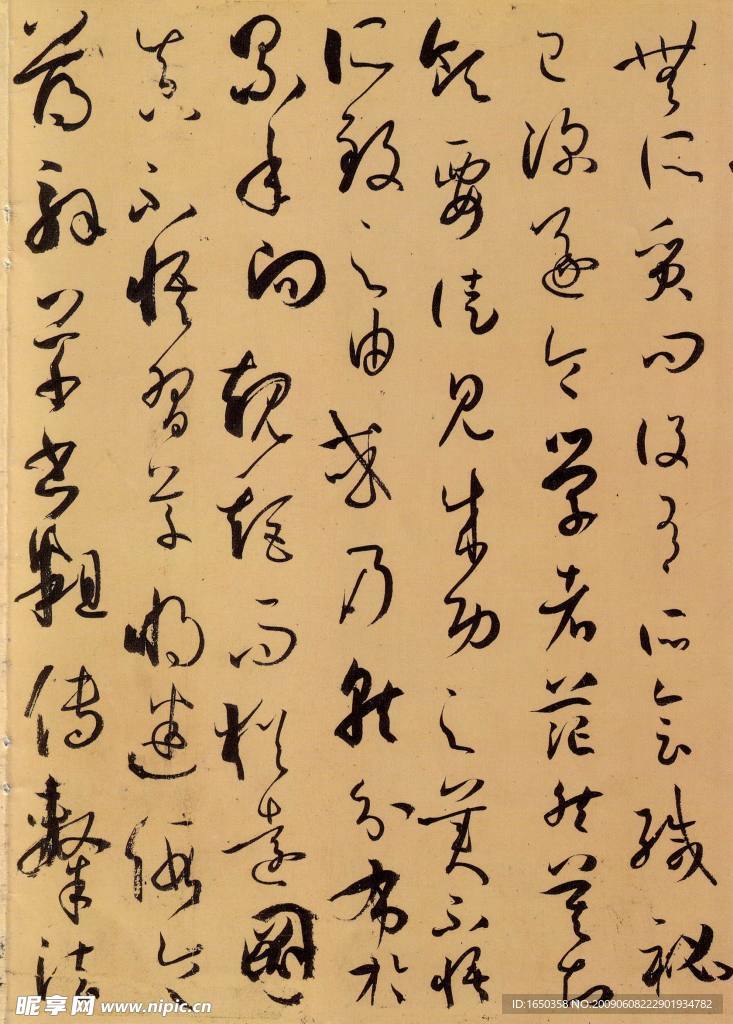 無所質問設有所會緘秘
已深遂令學者茫然莫知
領要徒見成功之美不悟
所致之由或乃就分布於
累年向規矩而猶遠圖
真不悟習草將迷假令
薄解草書粗傳隸法
昵享网 www.nipic.cn
ID:1650358 NO:20090608222901934782